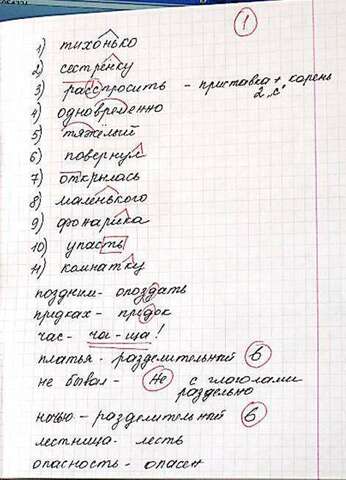 1
1) тихонько
2) сестрёнку
3) расспросить - приставка + корень
2 "с"
4) одновременно
5) тяжёлый
6) повернул
7) открылась
8) маленького
9) фонарика
10) упасть
11) комнатку
поздним - опоздать
предках - предок
час - ча - ща!
платья - разделительный ь
не бывал - не с глаголами
раздельно
ночью - разделительный ь
лестница - лесть
опасность - опасен